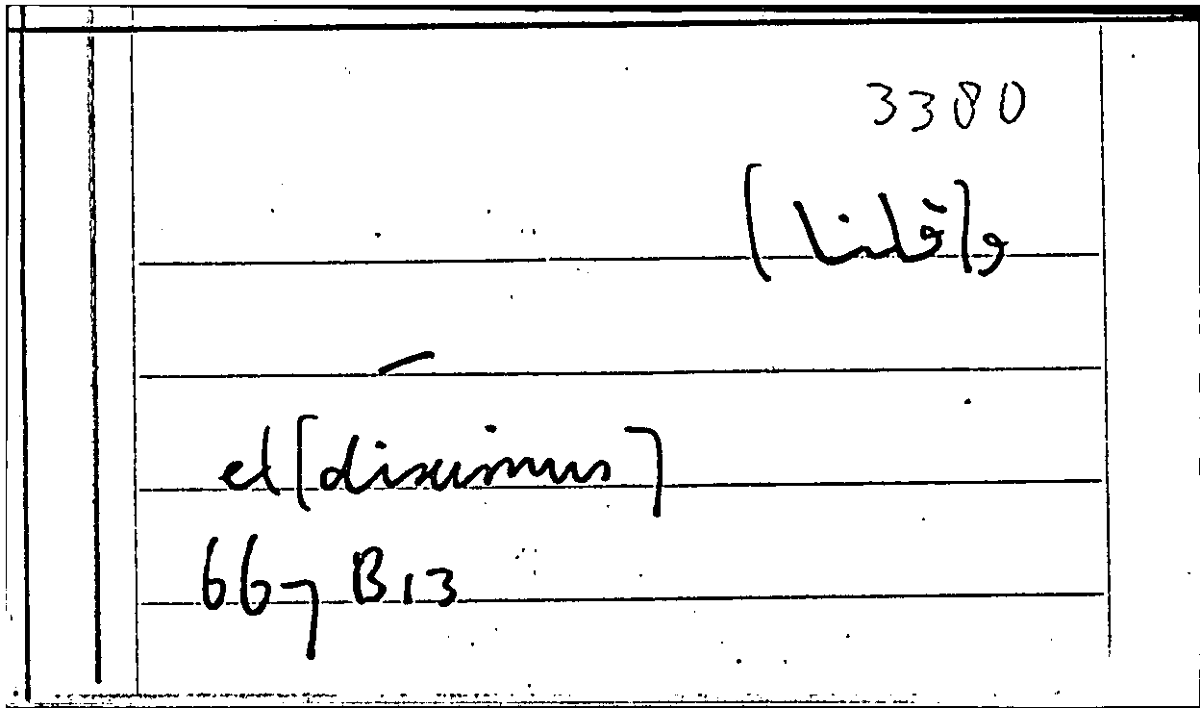 3380
و[قلنا]
et [diximus]
667 B13